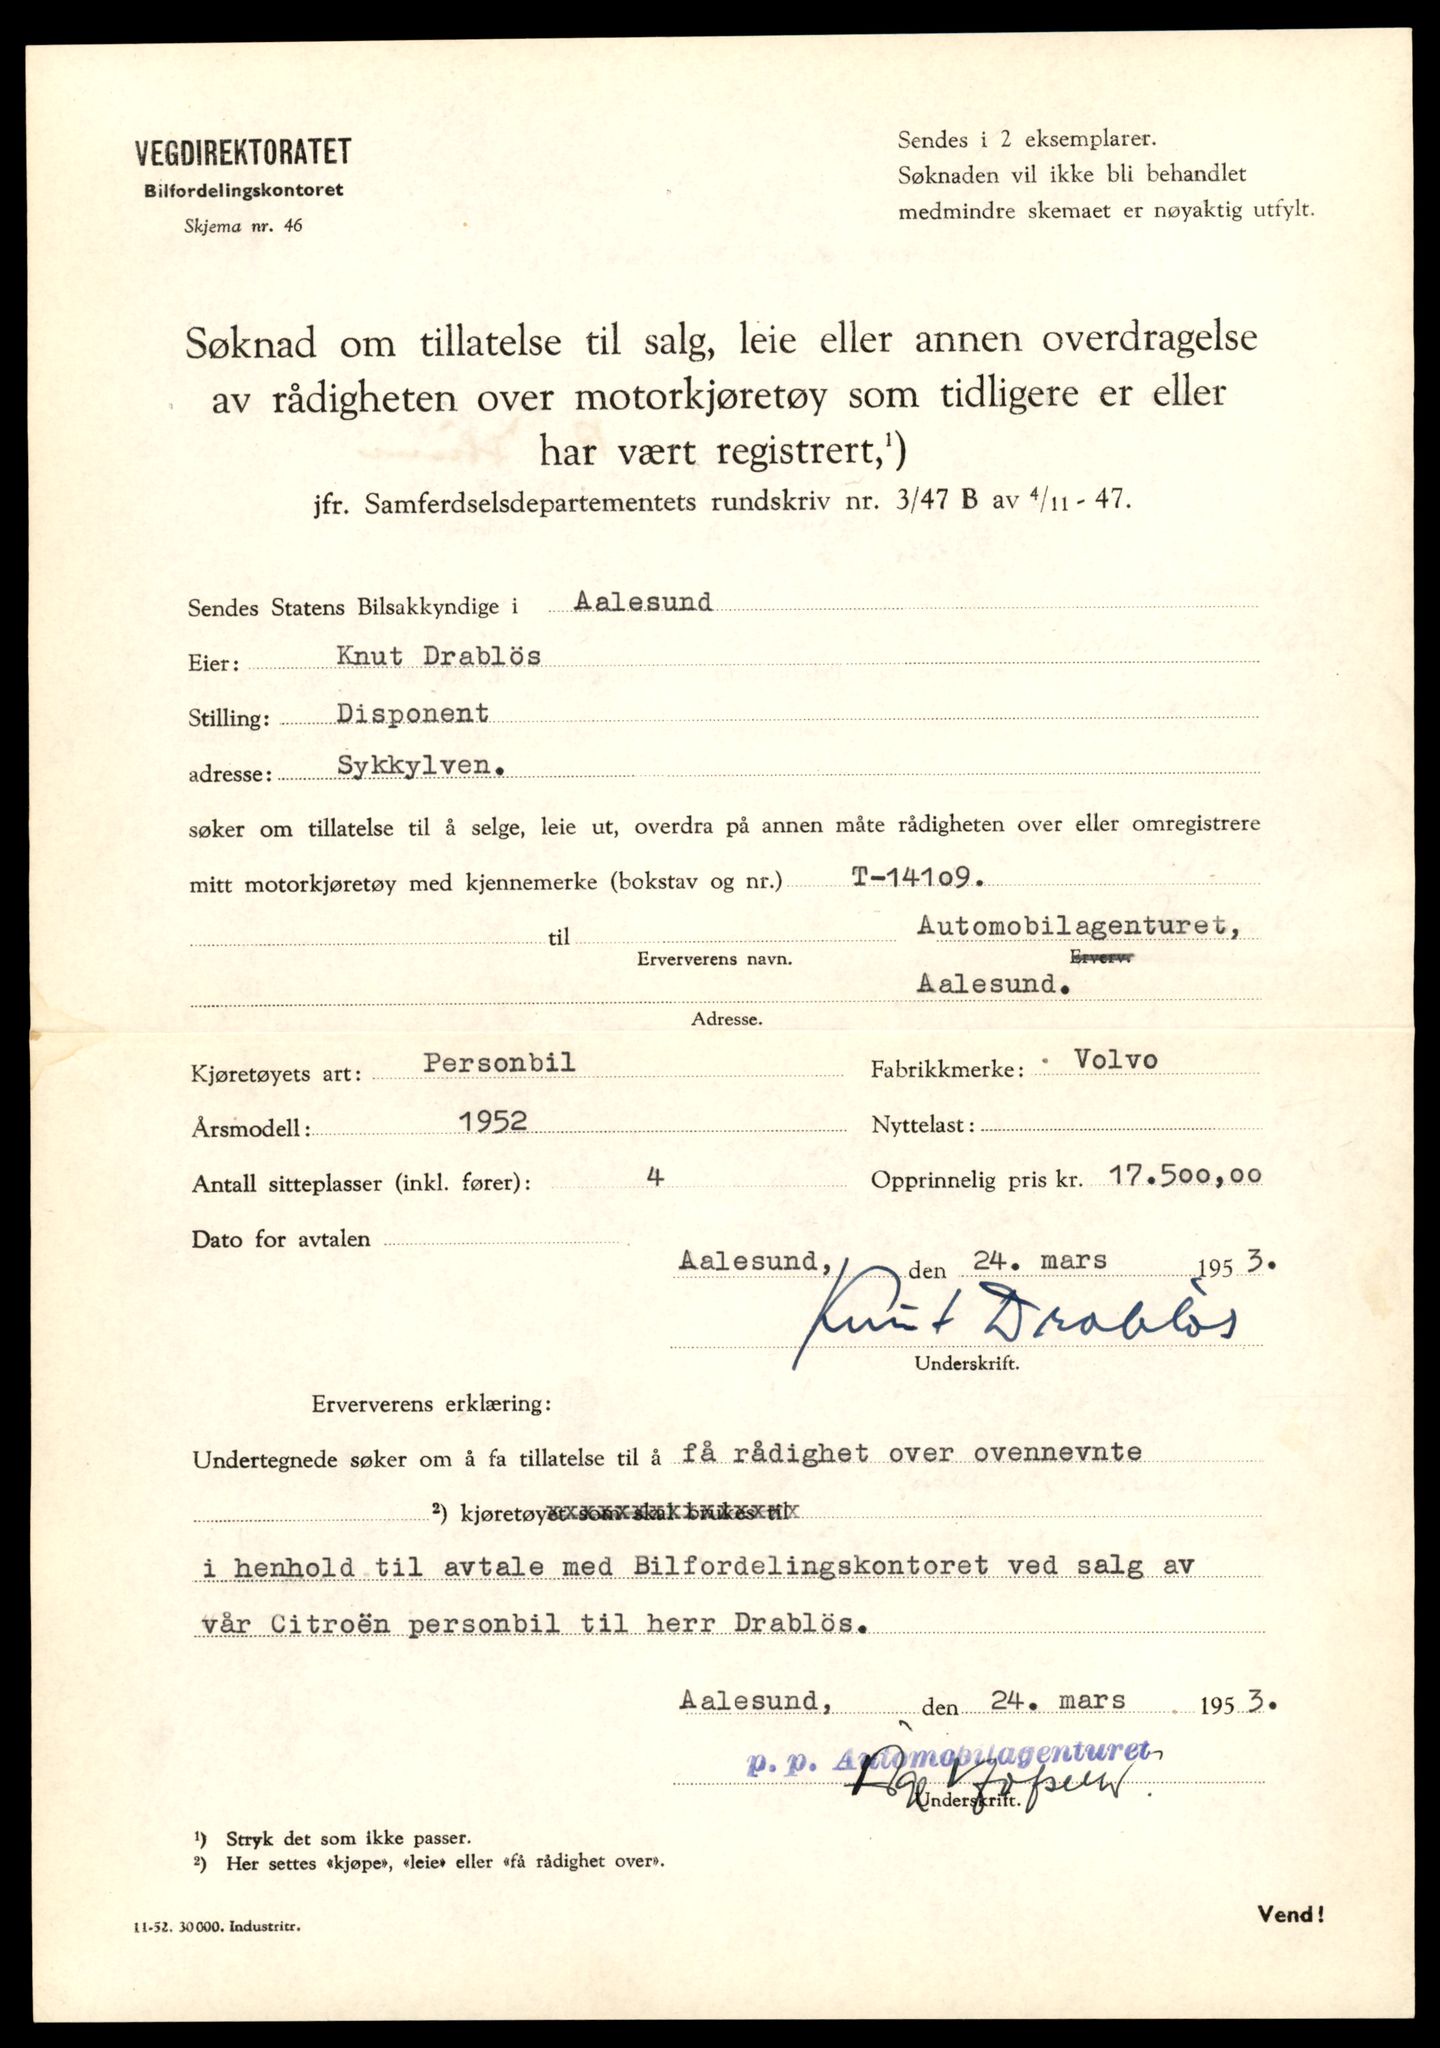 VEGDIREKTORATET
Bilfordelingskontoret
Skjema nr. 46
Sendes i 2 eksemplarer.
Søknaden vil ikke bli behandlet
medmindre skemaet er nøyaktig utfylt.
Søknad om tillatelse til salg, leie eller annen overdragelse
av rådigheten over motorkjøretøy som tidligere er eller
har vært registrert,¹)
jfr. Samferdselsdepartementets rundskriv nr. 3/47 B av 4/11 - 47.
Sendes Statens Bilsakkyndige i Aalesund
Eier: Knut Drablös
Stilling: Disponent
adresse: Sykkylven.
søker om tillatelse til å selge, leie ut, overdra på annen måte rådigheten over eller omregistrere
mitt motorkjøretøy med kjennemerke (bokstav og nr.) T-14109.
til Automobilagenturet,
Erververens navn. Erverv.
Aalesund.
Adresse.
Kjøretøyets art: Personbil Fabrikkmerke: Volvo
Årsmodell: 1952 Nyttelast:
Antall sitteplasser (inkl. fører): 4 Opprinnelig pris kr. 17.500,00
Dato for avtalen
Aalesund, den 24. mars 1953.
Knut Drabløs
Underskrift.
Erververens erklæring:
Undertegnede søker om å fa tillatelse til å få rådighet over ovennevnte
²) kjøretøyet som skal brukes til
i henhold til avtale med Bilfordelingskontoret ved salg av
vår Citroën personbil til herr Drablös.
Aalesund, den 24. mars 1953.
p. p. Automobilagenturet
Underskrift.
¹) Stryk det som ikke passer.
²) Her settes «kjøpe», «leie» eller «få rådighet over».
11-52. 30 000. Industritr.
Vend!